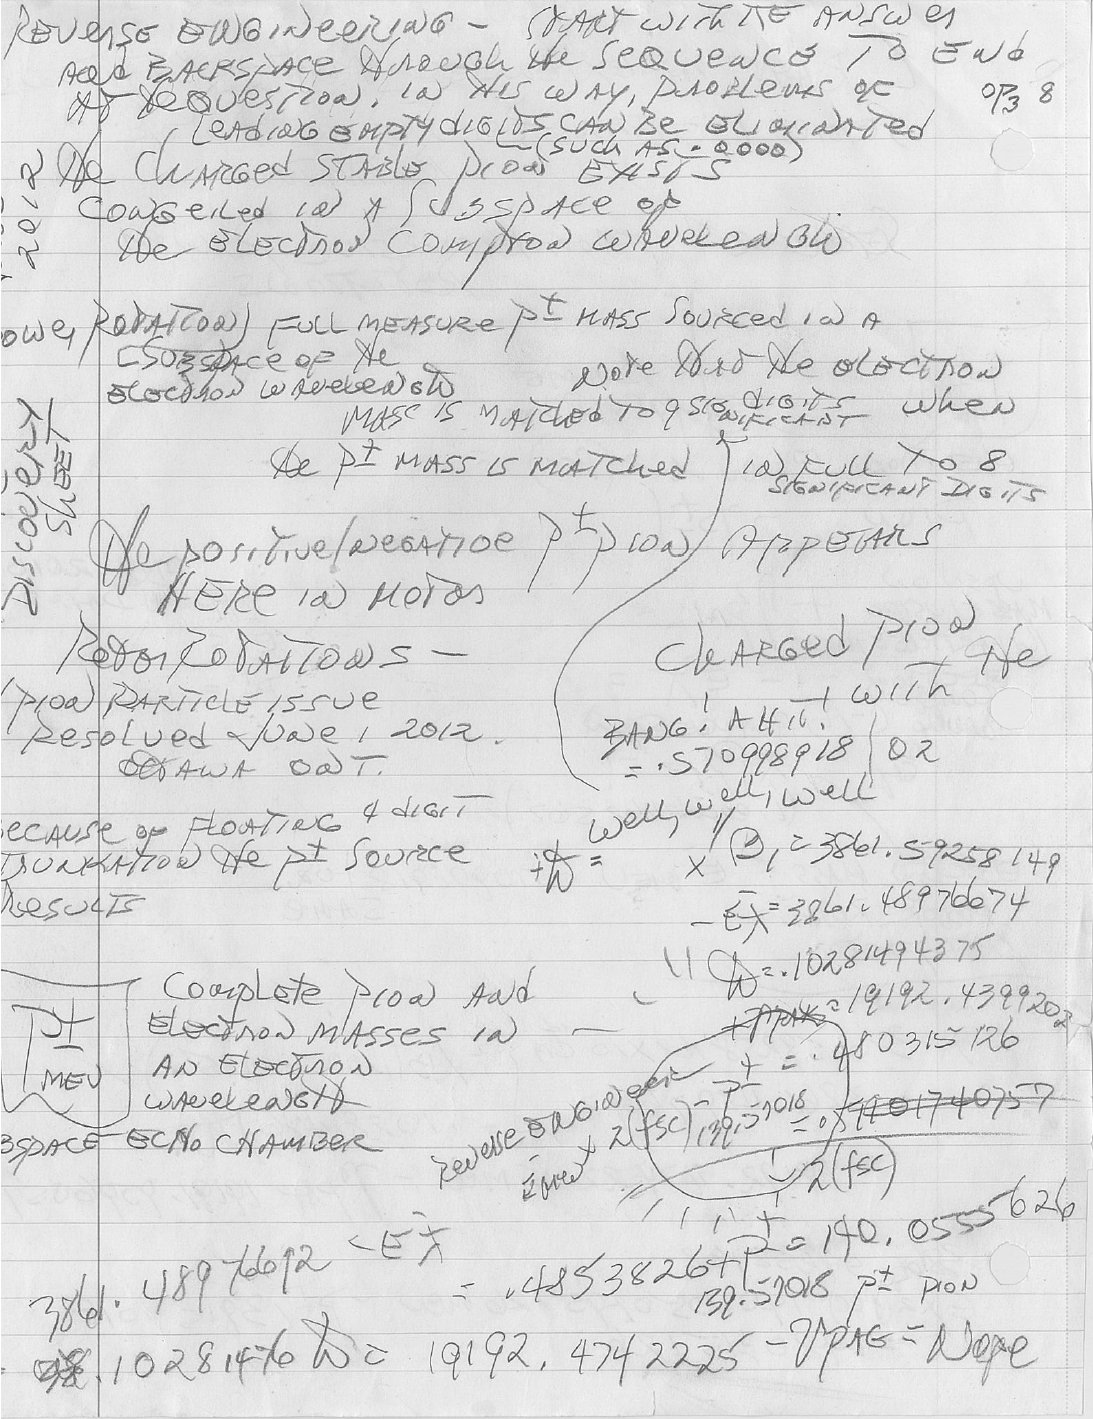 REVERSE ENGINEERING - START WITH THE ANSWER
AND BACKSPACE THROUGH the SEQUENCE TO END
AT QUESTION. IN THIS WAY, PROBLEMS OF OP3 8
LEADING EMPTY DIGITS CAN BE ELIMINATED
(SUCH AS -0.000)
The CHARGED STABLE PION EXISTS
IN A SUBSPACE OF
the ELECTRON COMPTON WAVELENGTH
2012
ROTATION) FULL MEASURE P± MASS SOURCED IN A
(SUBSPACE OF the
ELECTRON WAVELENGTH
NOTE THAT the ELECTRON
MASS IS MATCHED TO 9 SIGNIFICANT DIGITS WHEN
the P± MASS IS MATCHED IN FULL TO 8
SIGNIFICANT DIGITS
DISCOVERY
SHEET
The POSITIVE/NEGATIVE P± PION APPEARS
HERE IN MOTOR
ROTOR ROTATIONS -
PION PARTICLE ISSUE
RESOLVED JUNE 1 2012.
OTTAWA ONT.
CHARGED PION
BANG! A HIT! WITH the
= .570998918 | 02
well, well, well
ECAUSE OF FLOATING 4 DIGIT
TRUNKATION the P± SOURCE
RESULTS
x B1 = 3861.59258149
- Eƛ = 3861.48976674
= .10281494375
= 19192.4399202
P±
MEV
COMPLETE PION AND
ELECTRON MASSES IN
AN ELECTRON
WAVELENGTH
BSPACE ECHO CHAMBER
= .480315126
REVERSE ENGINEER
x 2(fsc) - P±
139.57018
2(fsc)
3861.48976692 - Eƛ
= .4853826 + P± = 140.0555626
139.57018 P± PION
.10281476 = 19192.4742225 - = Nope